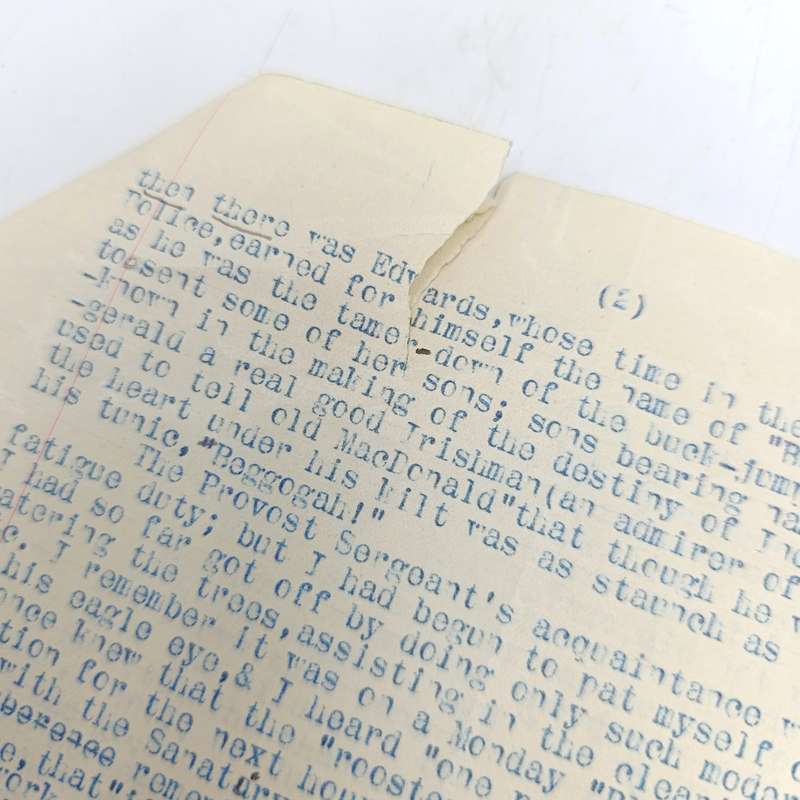 (2)
then there was Edwards,whose time in the
Police,earned for himself the name of "B
as he was the tamer-down of the buck-jum
to sent some of her sons; sons bearing na
-known in the making of the destiny of Ind
-gerald a real good Irishman(an admirer of
used to tell old MacDonald"that though he w
the heart under his kilt was as staunch as
his tunic,"Beggogah!"
The Provost Sergeant's acquaintance w
fatigue duty; but I had begun to pat myself o
I had so far got off by doing only such moder
atering the trees,assisting in the clean
c. I remember it was on a Monday "p
his eagle eye,& I heard "one n
once knew that the "rooste
tion for the next hou
with the Sanatary
remem
e,that"i
ork